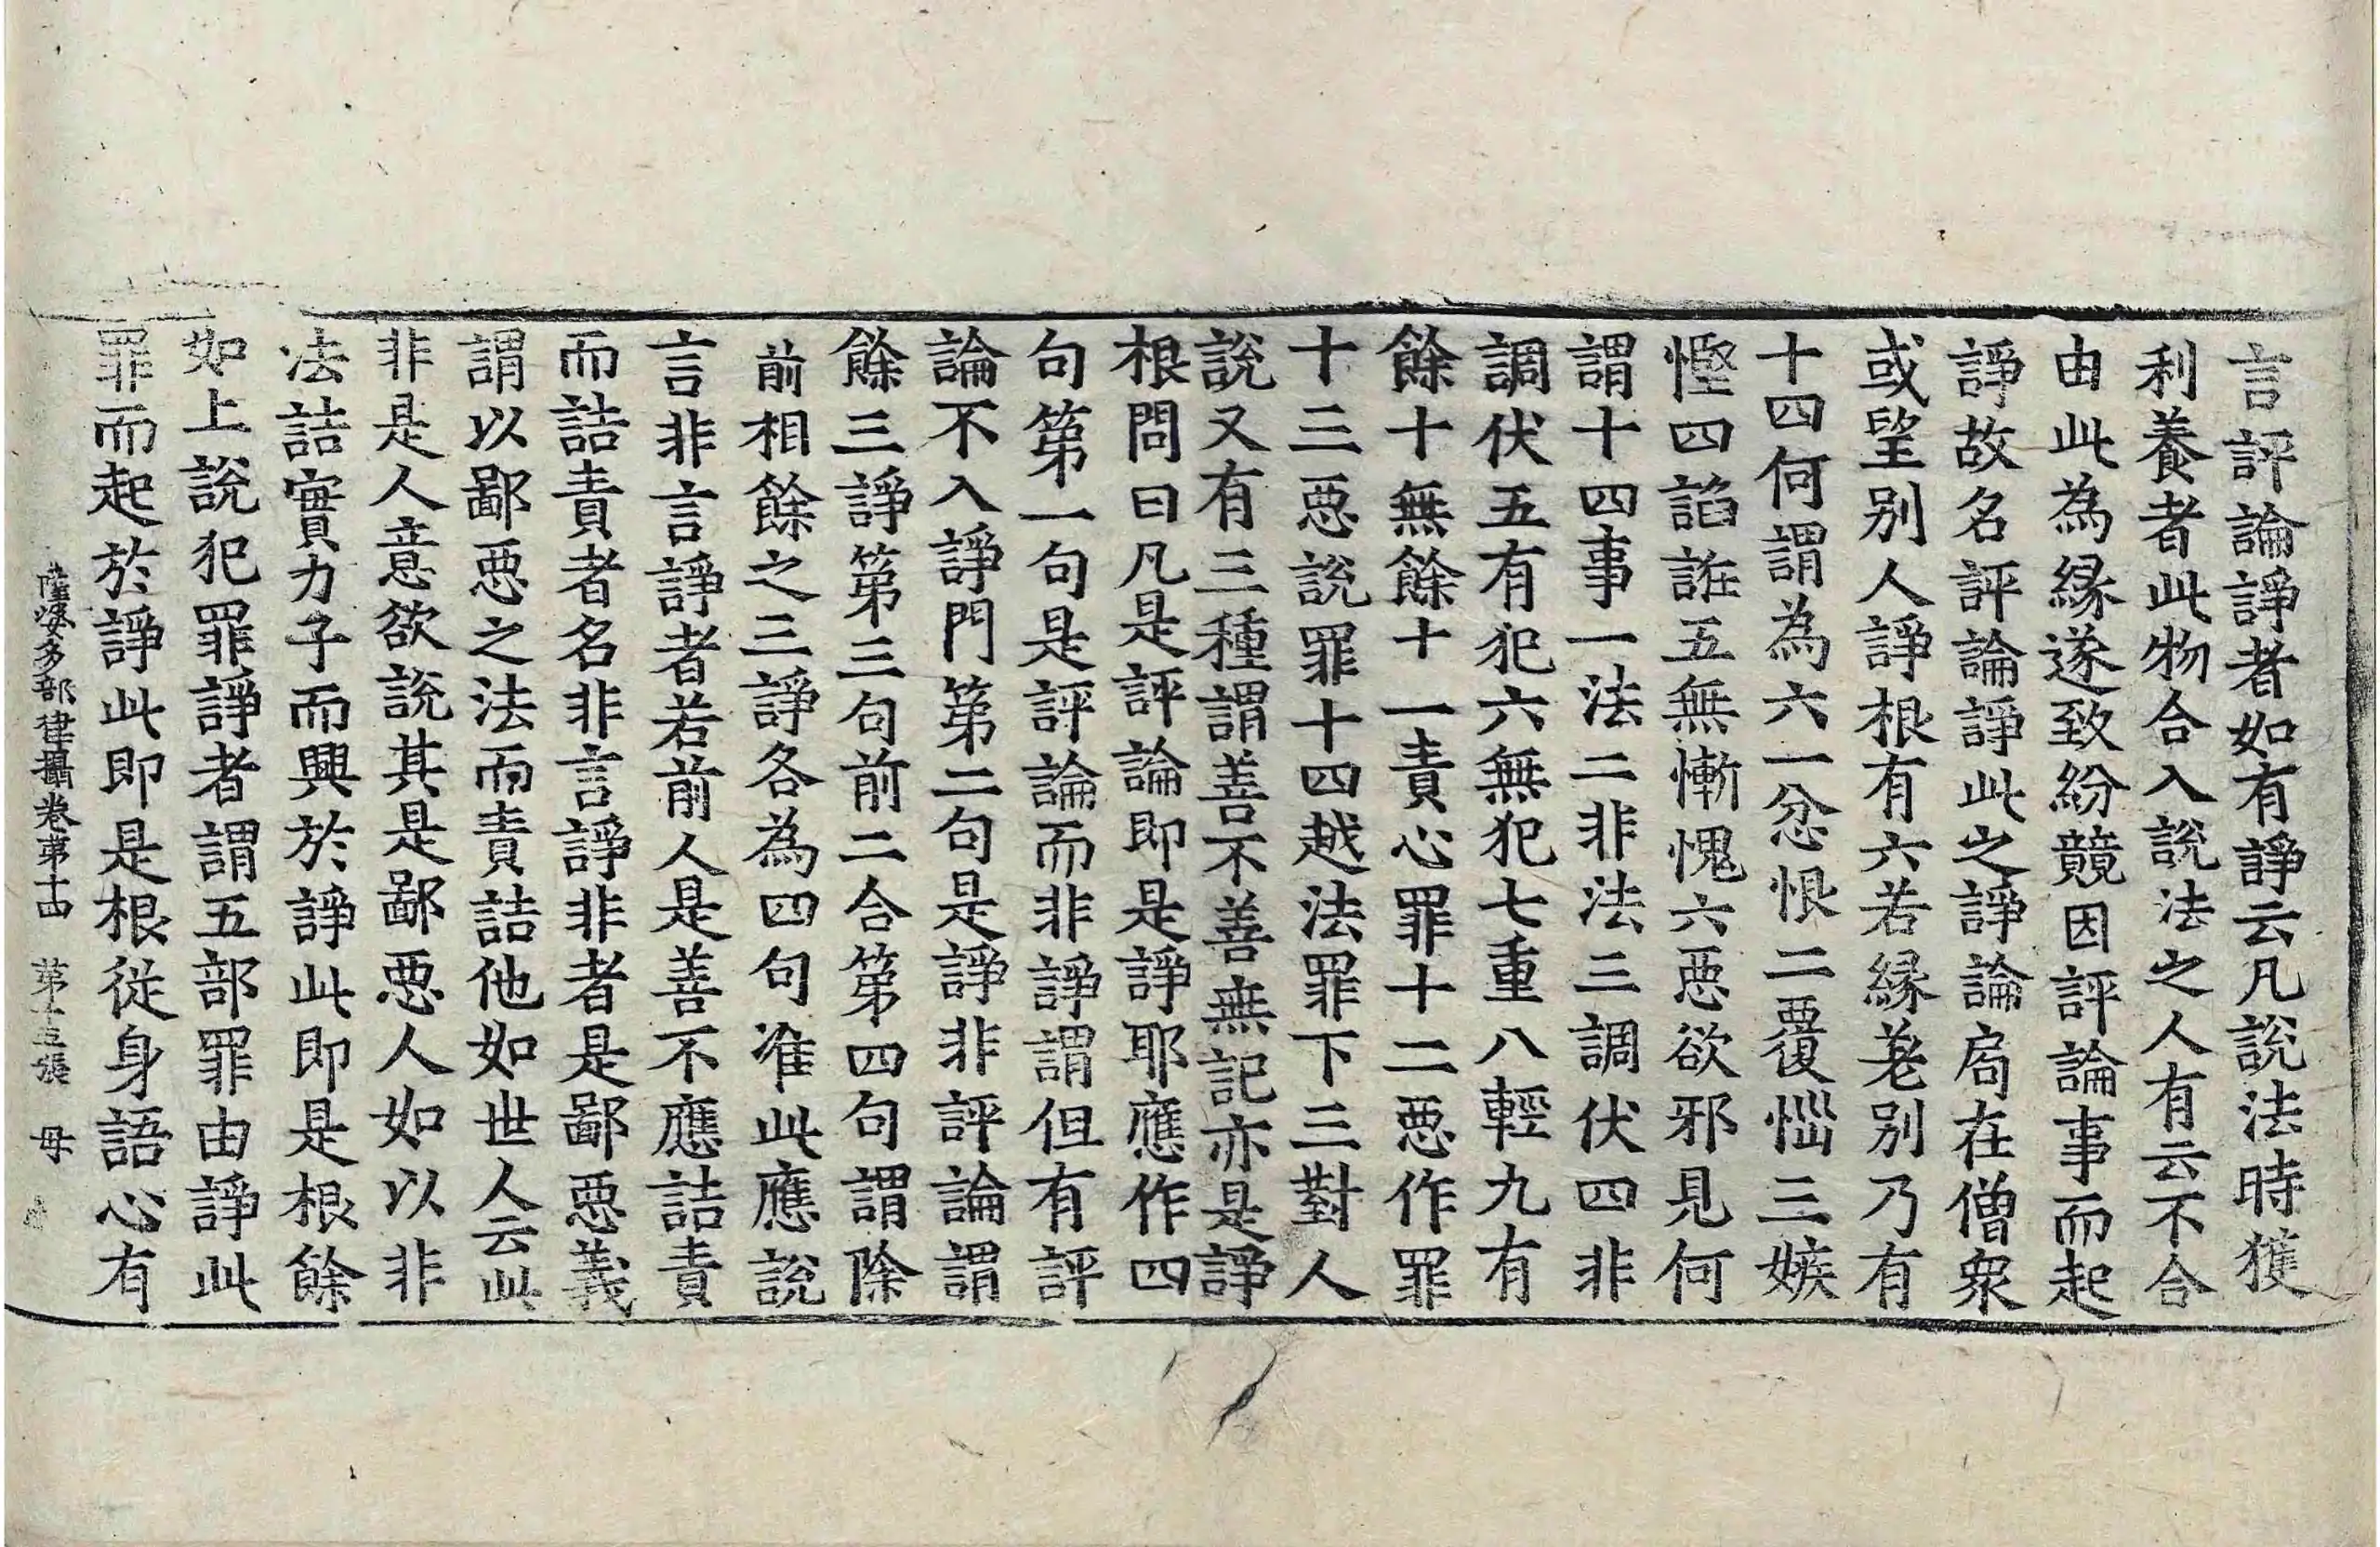 言評論諍者如有諍云凡說法時獲
利養者此物合入說法之人有云不合
由此為緣遂致紛競因評論事而起
諍故名評論諍此之諍論局在僧衆
或望別人諍根有六若緣差別乃有
十四何謂為六一忿恨二覆惱三嫉
慳四諂誑五無慚愧六惡欲邪見何
謂十四事一法二非法三調伏四非
調伏五有犯六無犯七重八輕九有
餘十無餘十一責心罪十二惡作罪
十三惡說罪十四越法罪下三對人
說又有三種謂善不善無記亦是諍
根問曰凡是評論即是諍耶應作四
句第一句是評論而非諍謂但有評
論不入諍門第二句是諍非評論謂
餘三諍第三句前二合第四句謂除
前相餘之三諍各為四句准此應說
言非言諍者若前人是善不應詰責
而詰責者名非言諍非者是鄙惡義
謂以鄙惡之法而責詰他如世人云此
非是人意欲說其是鄙惡人如以非
法詰實力子而興於諍此即是根餘
如上說犯罪諍者謂五部罪由諍此
罪而起於諍此即是根從身語心有
薩婆多部律攝卷第十四 第十五張 母